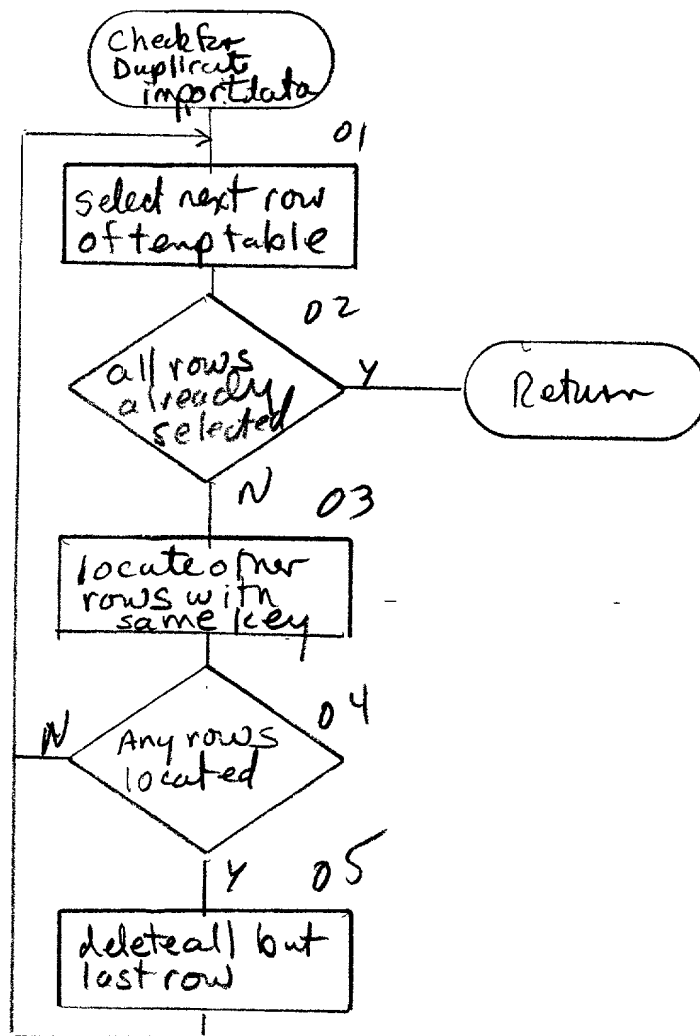 Check for
Duplicate
import data
01
Select next row
of temp table
02
all rows
already
selected
Y
Return
N
03
locate other
rows with
same key
04
Any rows
located
N
Y
05
delete all but
last row